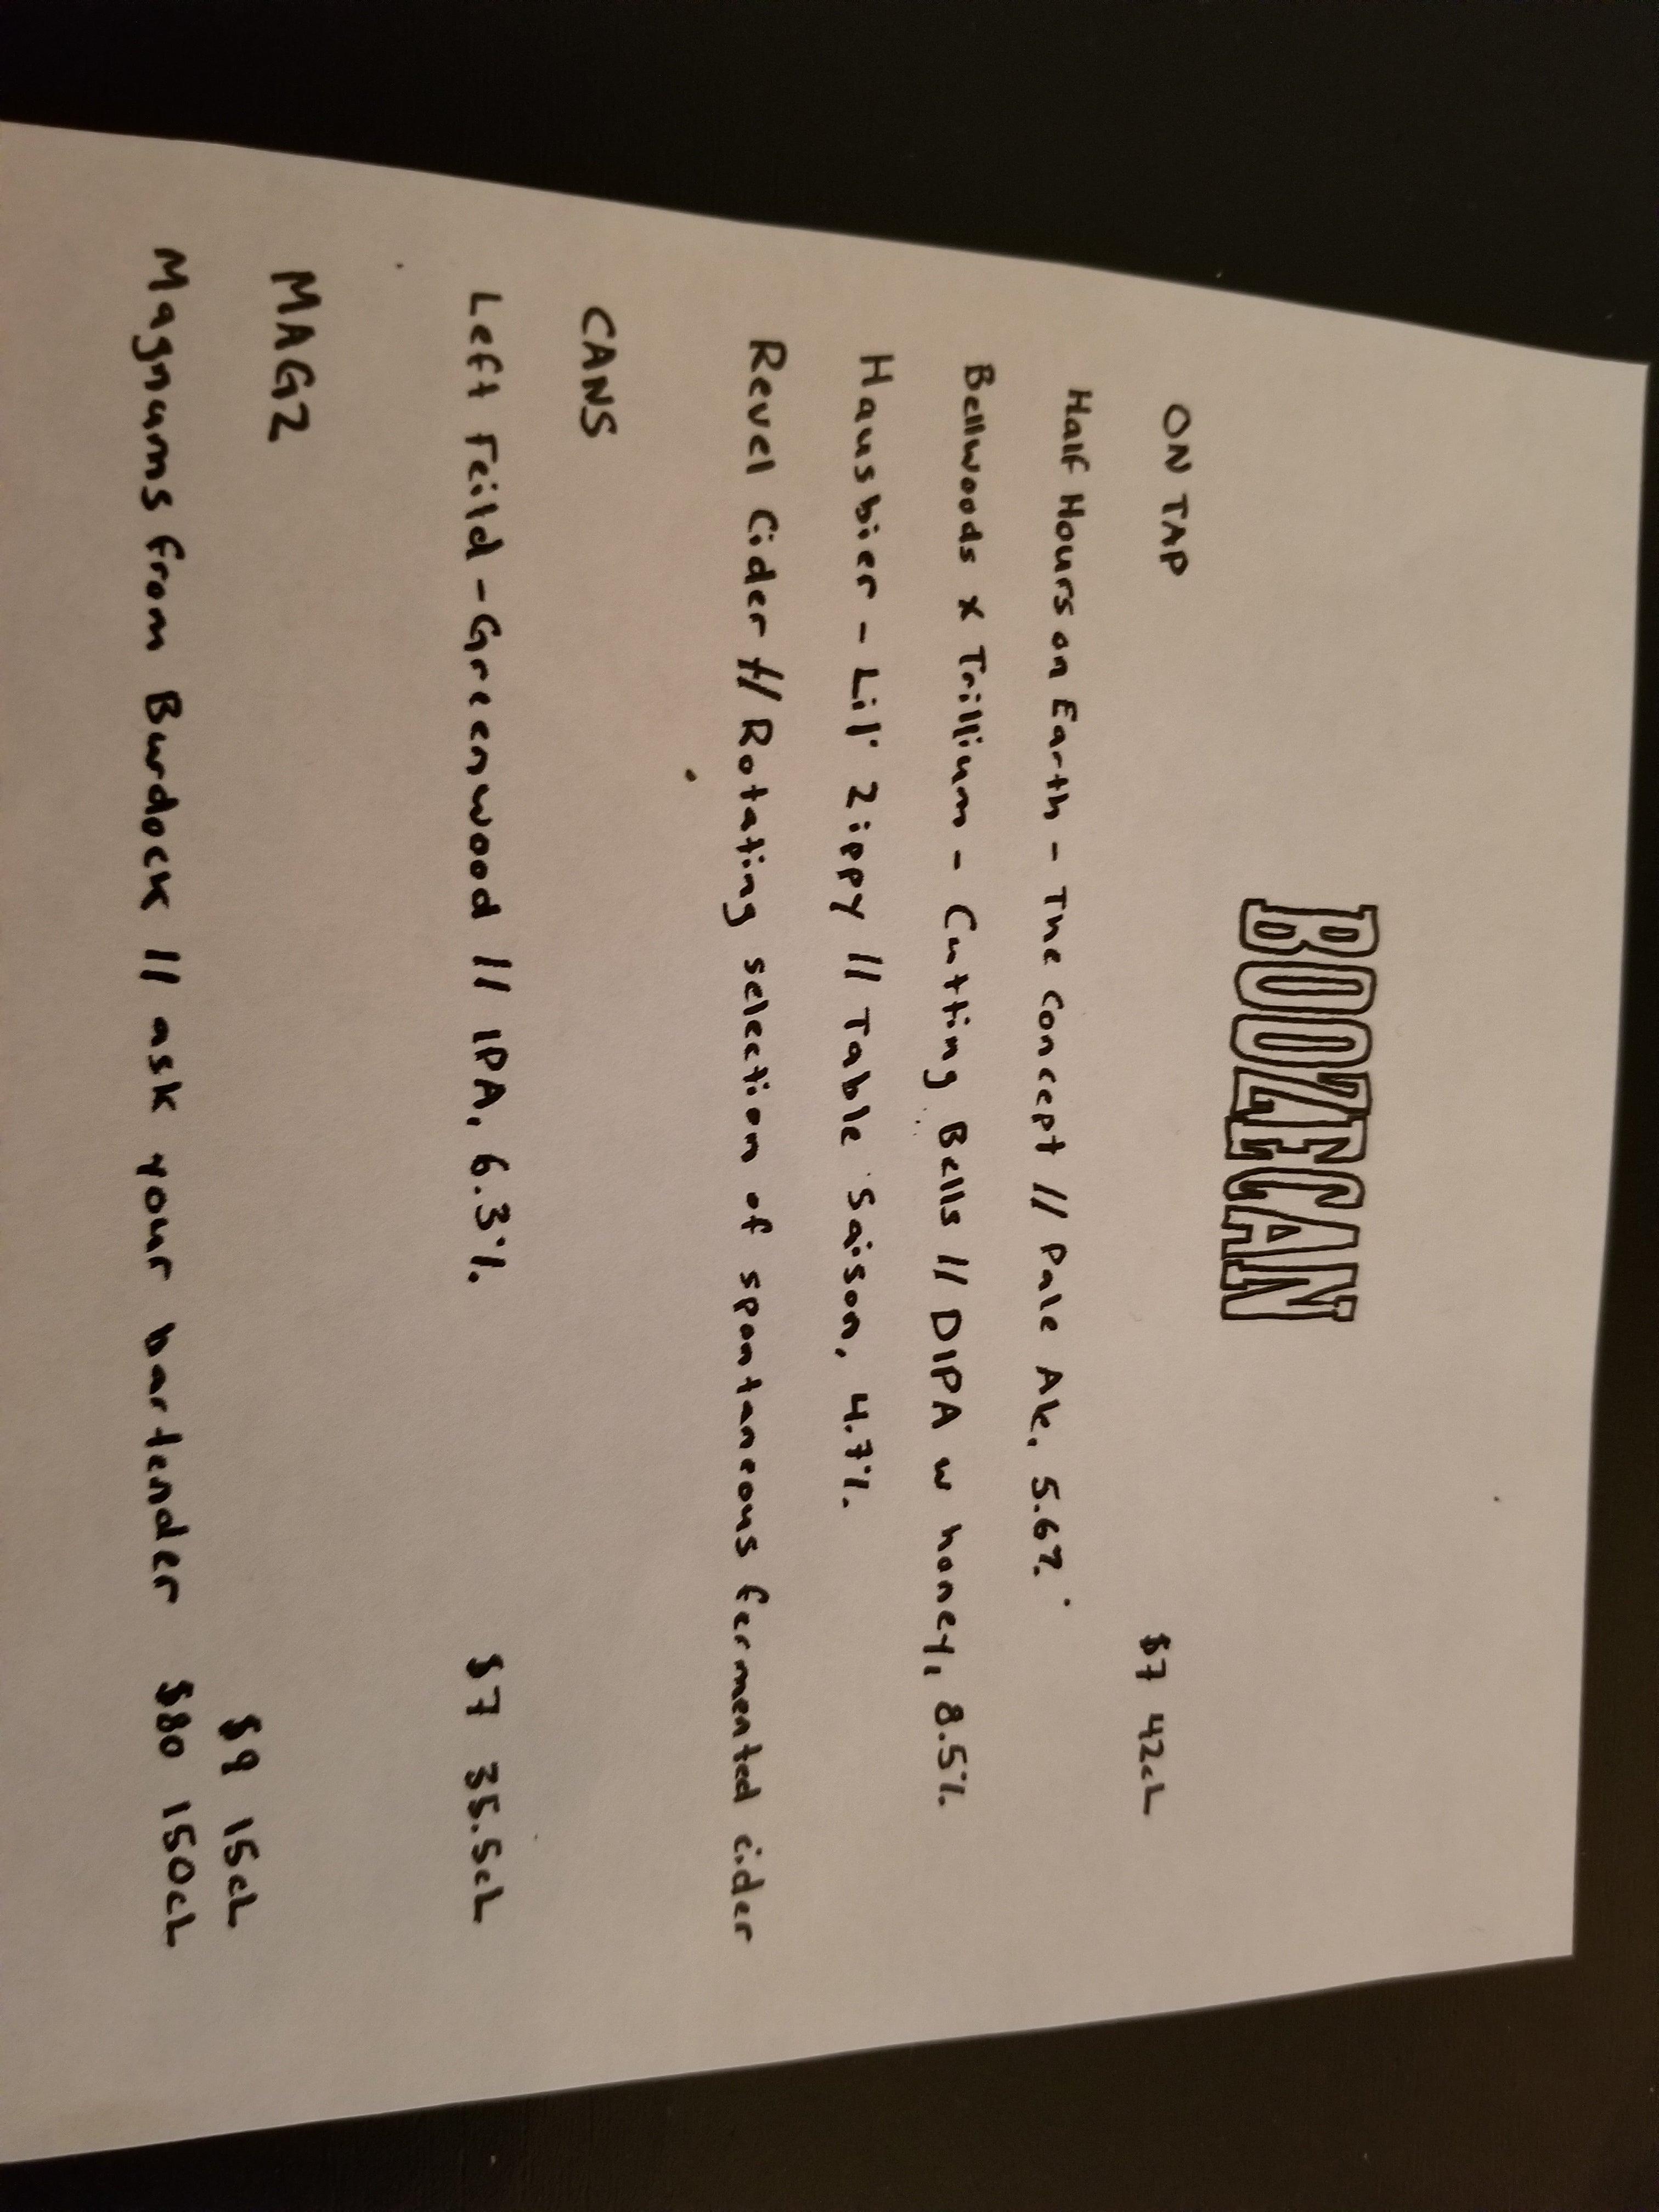 BOOZECAN
ON TAP $7 42cL
Half Hours on Earth - The Concept // Pale Ale. 5.6%.
Bellwoods x Trillium - Cutting Bells // DIPA w honey, 8.5%.
Hausbier - Lil' Zippy // Table Saison, 4.7%.
Revel Cider // Rotating selection of spontaneous fermented cider
CANS
Left Feild - Greenwood // IPA, 6.3%. $7 35.5cL
MAGZ
$9 15cL
Magnums from Burdock // ask your bartender $80 150cL